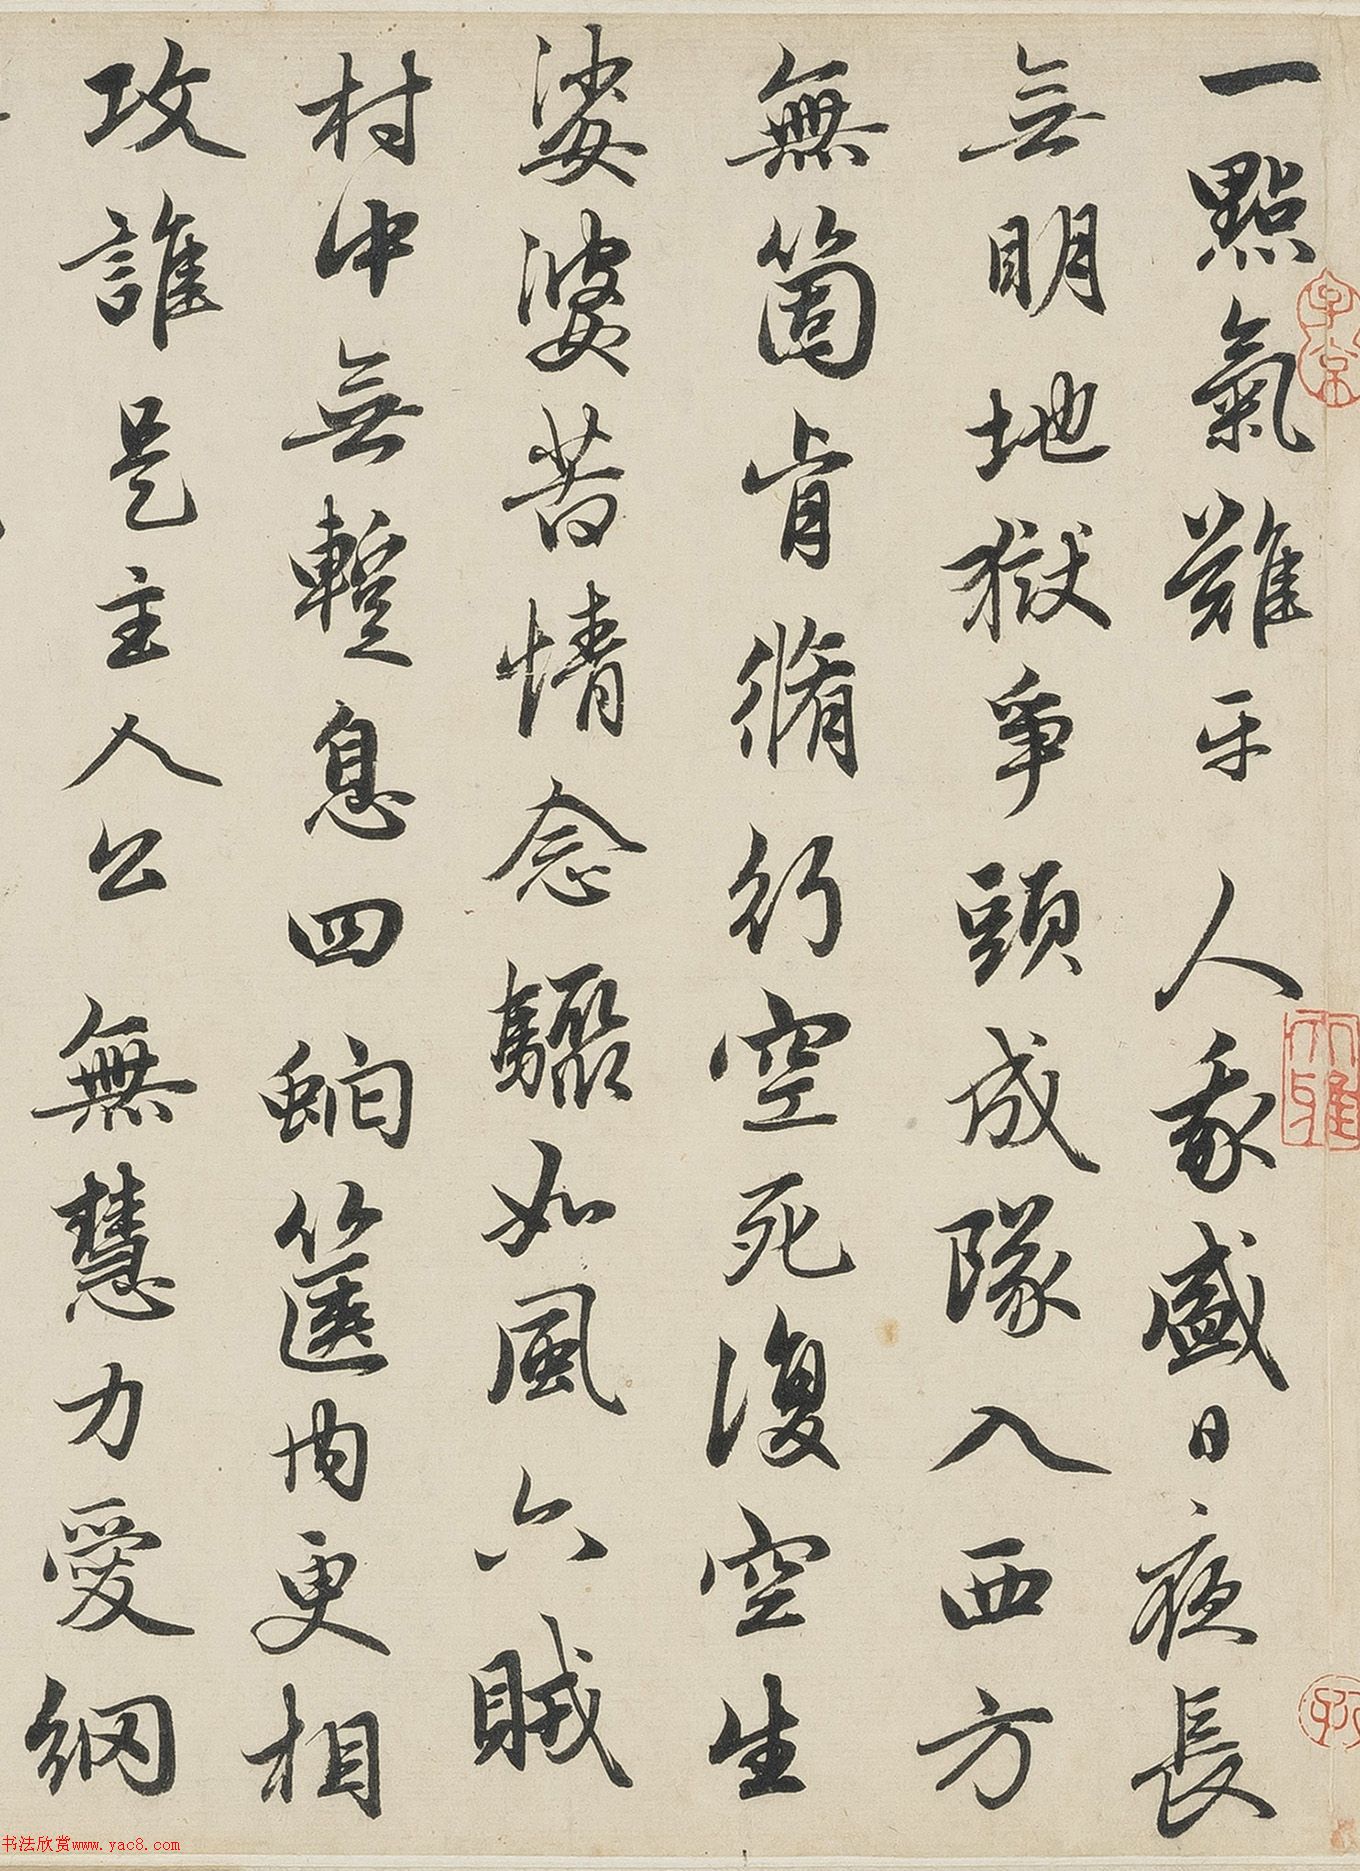 一點氣難平人我盛日夜長
無明地獄爭頭成隊入西方
無箇肯脩行空死復空生
娑婆苦情念驟如風六賊
村中無蹔息四蛇篋內更相
攻誰是主人公 無慧力愛網
书法欣赏www.yac8.com